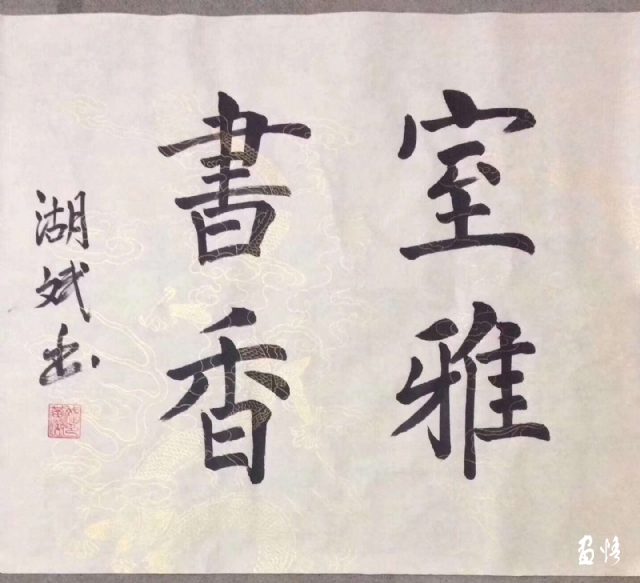 室雅
書香
湖斌书